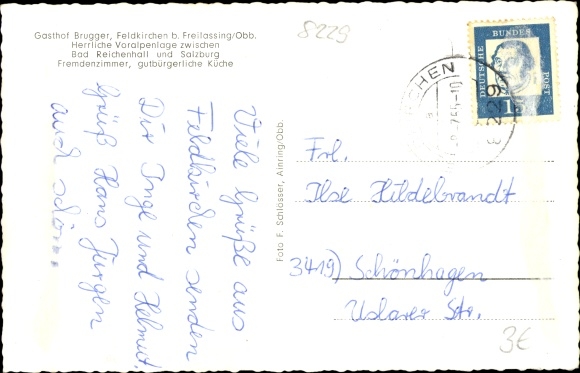 Gasthof Brugger, Feldkirchen b. Freilassing/Obb.
Herrliche Voralpenlage zwischen
Bad Reichenhall und Salzburg
Fremdenzimmer, gutbürgerliche Küche
8229
Viele Grüße aus
Feldkirchen senden
Dir Inge und Helmut.
Grüß Hans Jürgen
auch schön.
Foto F. Schlösser, Ainring/Obb.
DEUTSCHE BUNDES POST
15
8229
Frl.
Ilse Hildebrandt
3419) Schönhagen
Uslarer Str.
3€